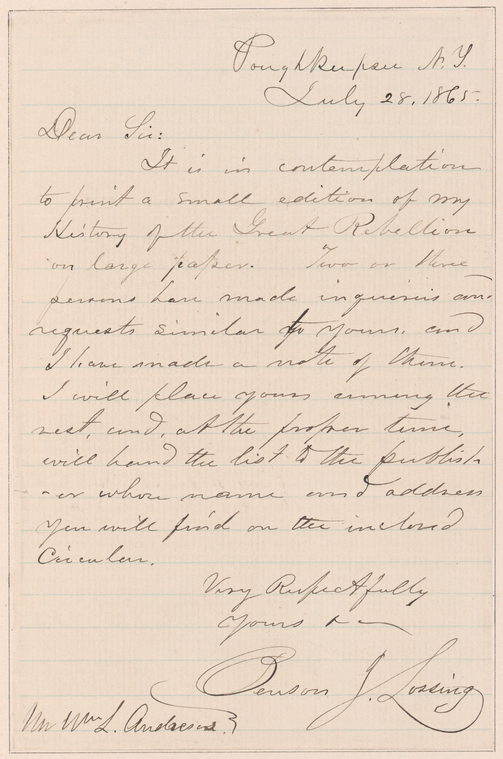 Poughkeepsie N.Y.
July 28, 1865.
Dear Sir:
It is in contemplation
to print a small edition of my
History of the Great Rebellion
on large paper. Two or three
persons have made inquiries and
requests similar to yours, and
I have made a note of them.
I will place yours among the
rest, and, at the proper time,
will hand the list to the publish
-er whose name and address
you will find on the inclosed
Circular.
Very Respectfully
Yours &c
Benson J. Lossing
Mr Wm L. Andrews.